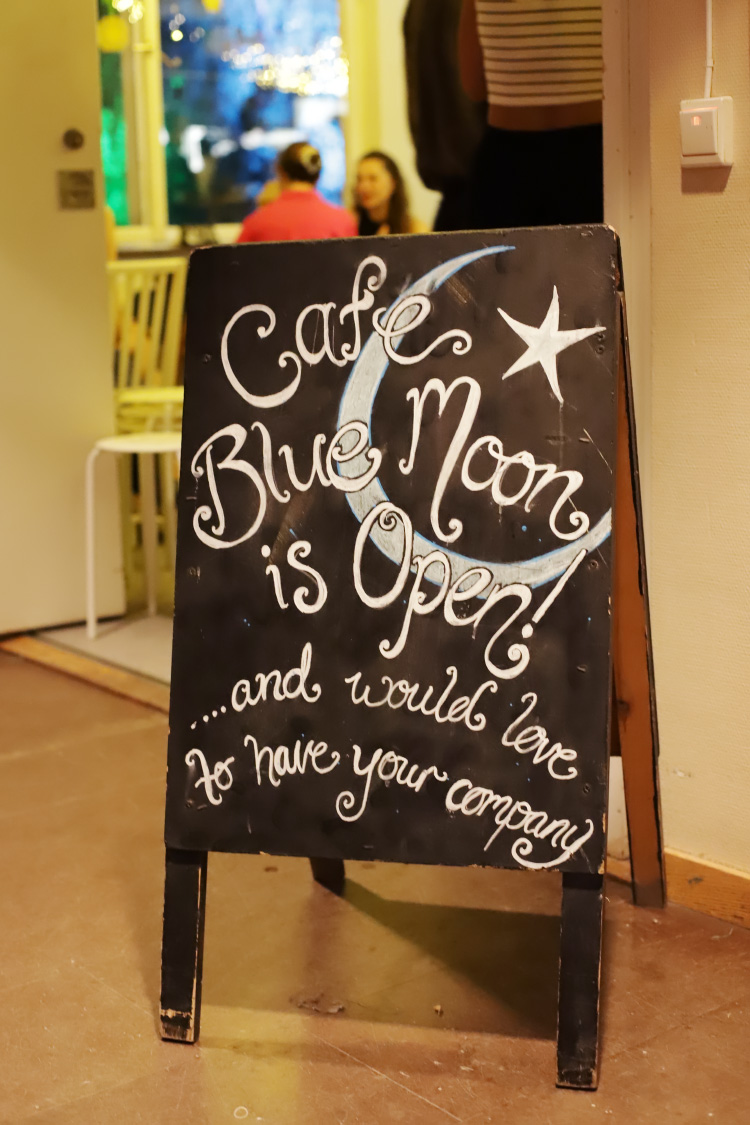 Cafe
Blue Moon
is Open!
....and would love
to have your company